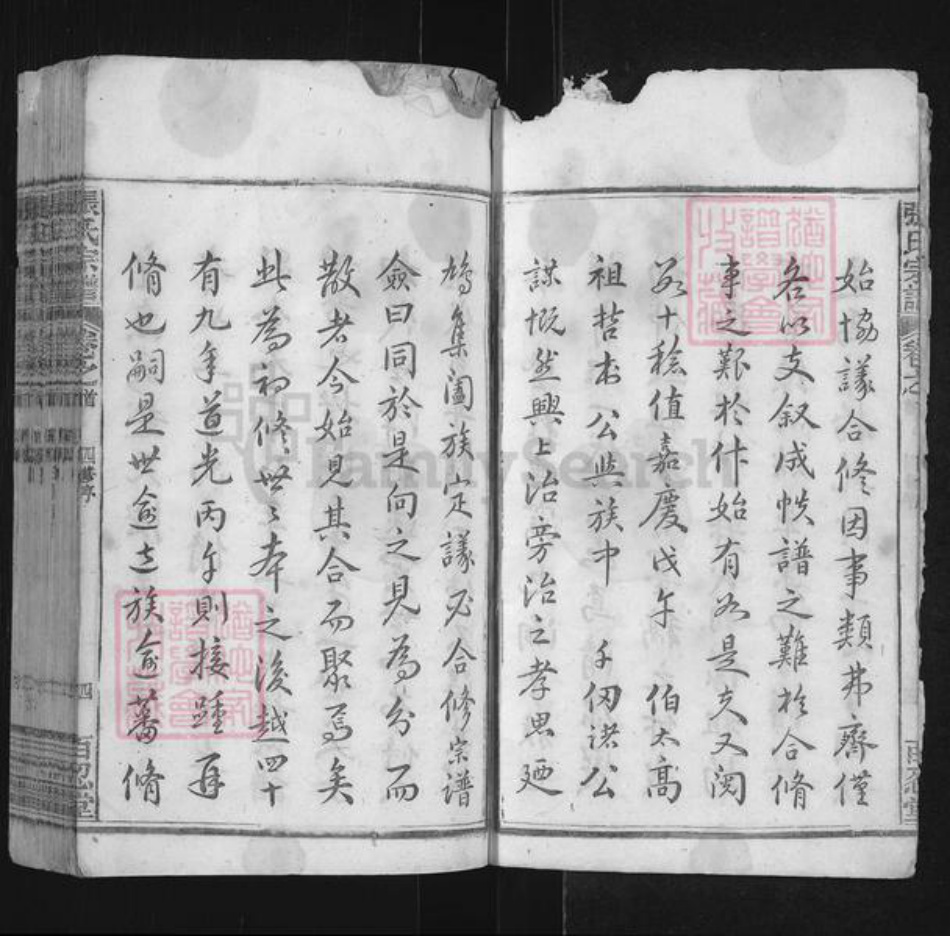 張氏宗譜
始協議合修因事類弗齊僅
各以支叙成帙譜之難於合脩
事之艱於作始有如是夫又閱
若干稔值嘉慶戊午 伯太高
祖哲 公與族中 千仞諸公
謀慨然興上治旁治之孝思廼
鳩集闔族定議必合修宗譜
僉曰同於是向之見為分而
散者今始見其合而聚焉矣
此為初修世〻本之後越四十
有九年道光丙午則接踵再
脩也嗣是世愈遠族愈蕃脩
張氏宗譜
四
百忍堂
FamilySearch